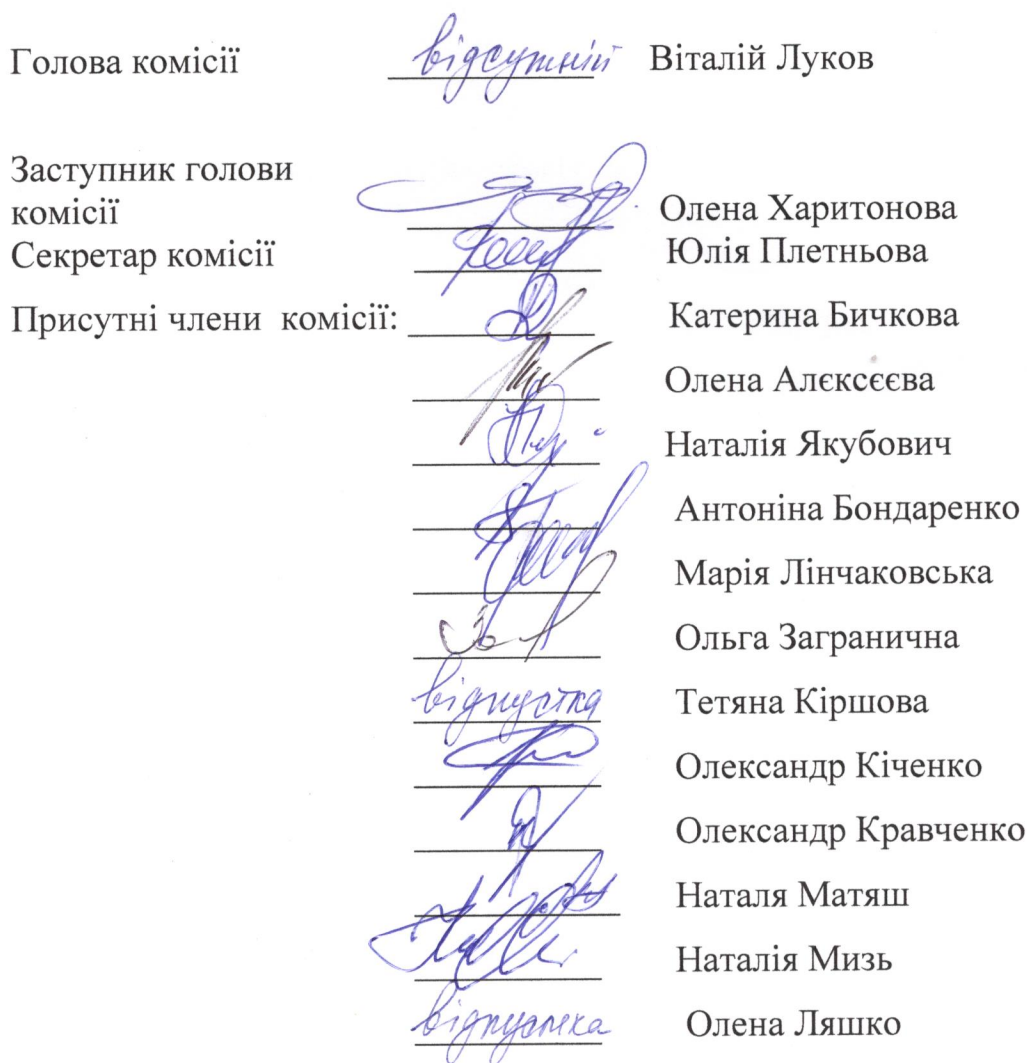 Голова комісії відсутній Віталій Луков
Заступник голови
комісії Олена Харитонова
Секретар комісії Юлія Плетньова
Присутні члени комісії: Катерина Бичкова
Олена Алєксєєва
Наталія Якубович
Антоніна Бондаренко
Марія Лінчаковська
Ольга Загранична
відпустка Тетяна Кіршова
Олександр Кіченко
Олександр Кравченко
Наталя Матяш
Наталія Мизь
відпустка Олена Ляшко